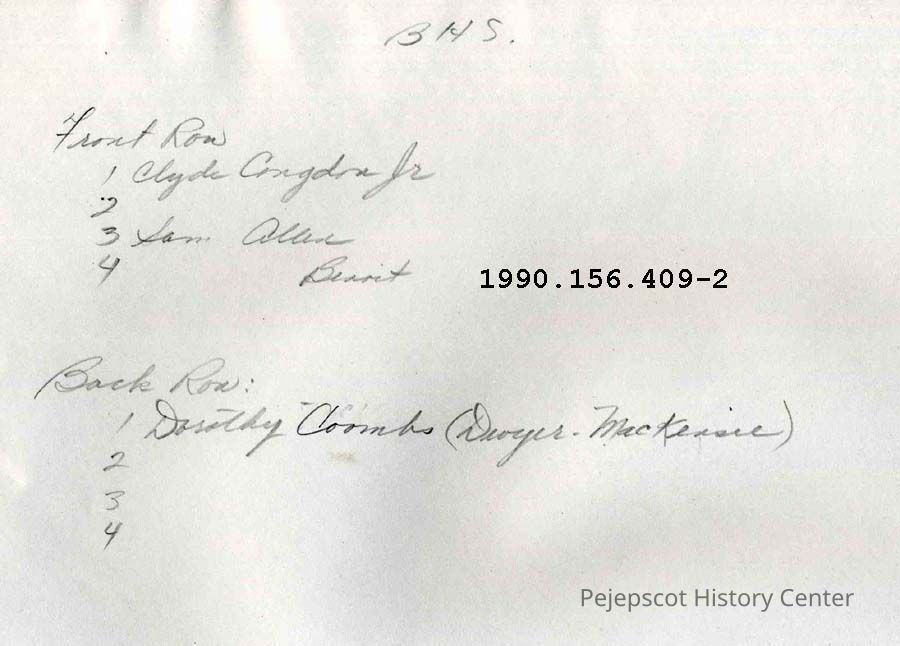 BHS.
Front Row
1 Clyde Congdon Jr
2
3 Sam Allen
4 Benoit
1990.156.409-2
Back Row:
1 Dorothy Coombs (Dwyer-MacKensie)
2
3
4
Pejepscot History Center